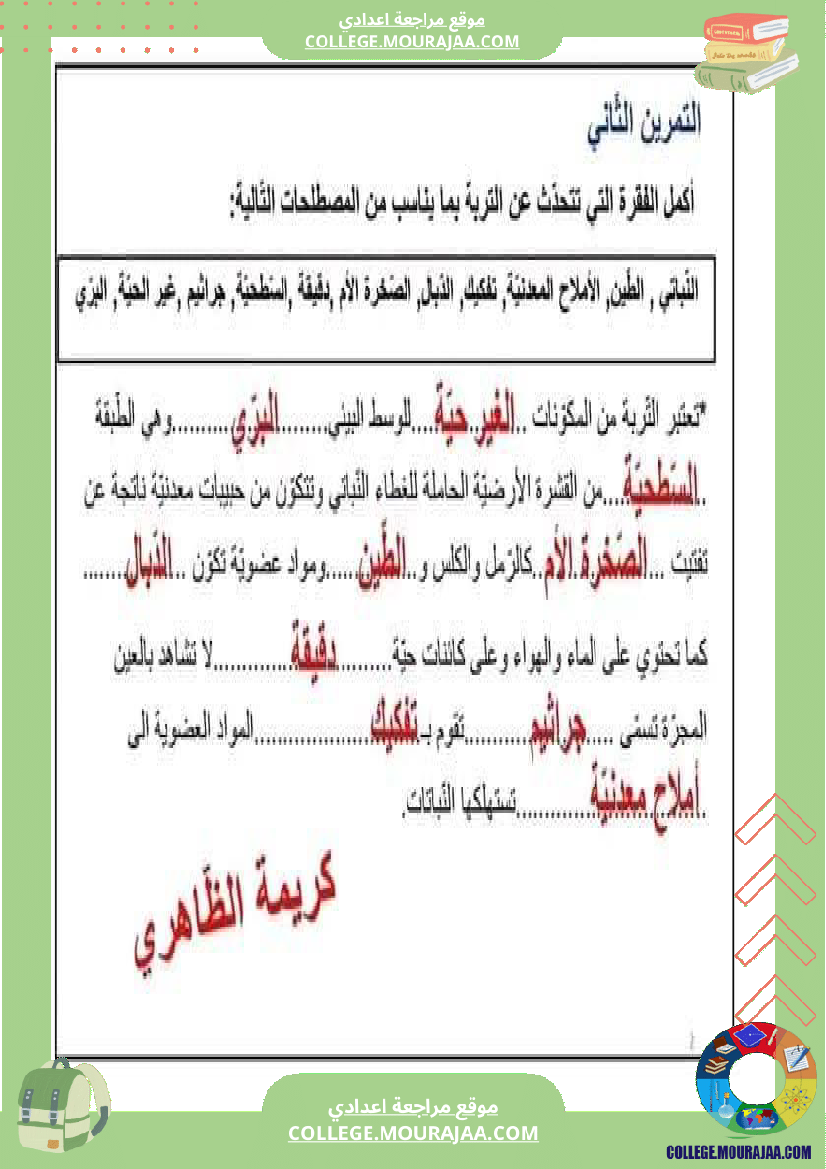 موقع مراجعة اعدادي
COLLEGE.MOURAJAA.COM
التمرين الثّاني
أكمل الفقرة التي تتحدّث عن التربة بما يناسب من المصطلحات التّالية:
النّباتي , الطّين, الأملاح المعدنيّة, تفكيك, الدّبال, الصّخرة الأم ,دقيقة ,السّطحيّة, جراثيم ,غير الحيّة, البرّي
*تعتبر التّربة من المكوّنات ..الغير حيّة....للوسط البيئي........البرّي..........وهي الطّبقة
..السّطحيّة....من القشرة الأرضيّة الحاملة للغطاء النّباتي وتتكوّن من حبيبات معدنيّة ناتجة عن
تفتيت ...الصّخرة الأم..كالرّمل والكلس و..الطّين.....ومواد عضويّة تكوّن ..الدّبال.......
كما تحتوي على الماء والهواء وعلى كائنات حيّة.........دقيقة.............لا تشاهد بالعين
المجرّة تسمّى .....جراثيم..........تقوم بـ تفكيك...................المواد العضوية الى
.أملاح معدنيّة............تستهلكها النّباتات.
كريمة الظّاهري
موقع مراجعة اعدادي
COLLEGE.MOURAJAA.COM
COLLEGE.MOURAJAA.COM